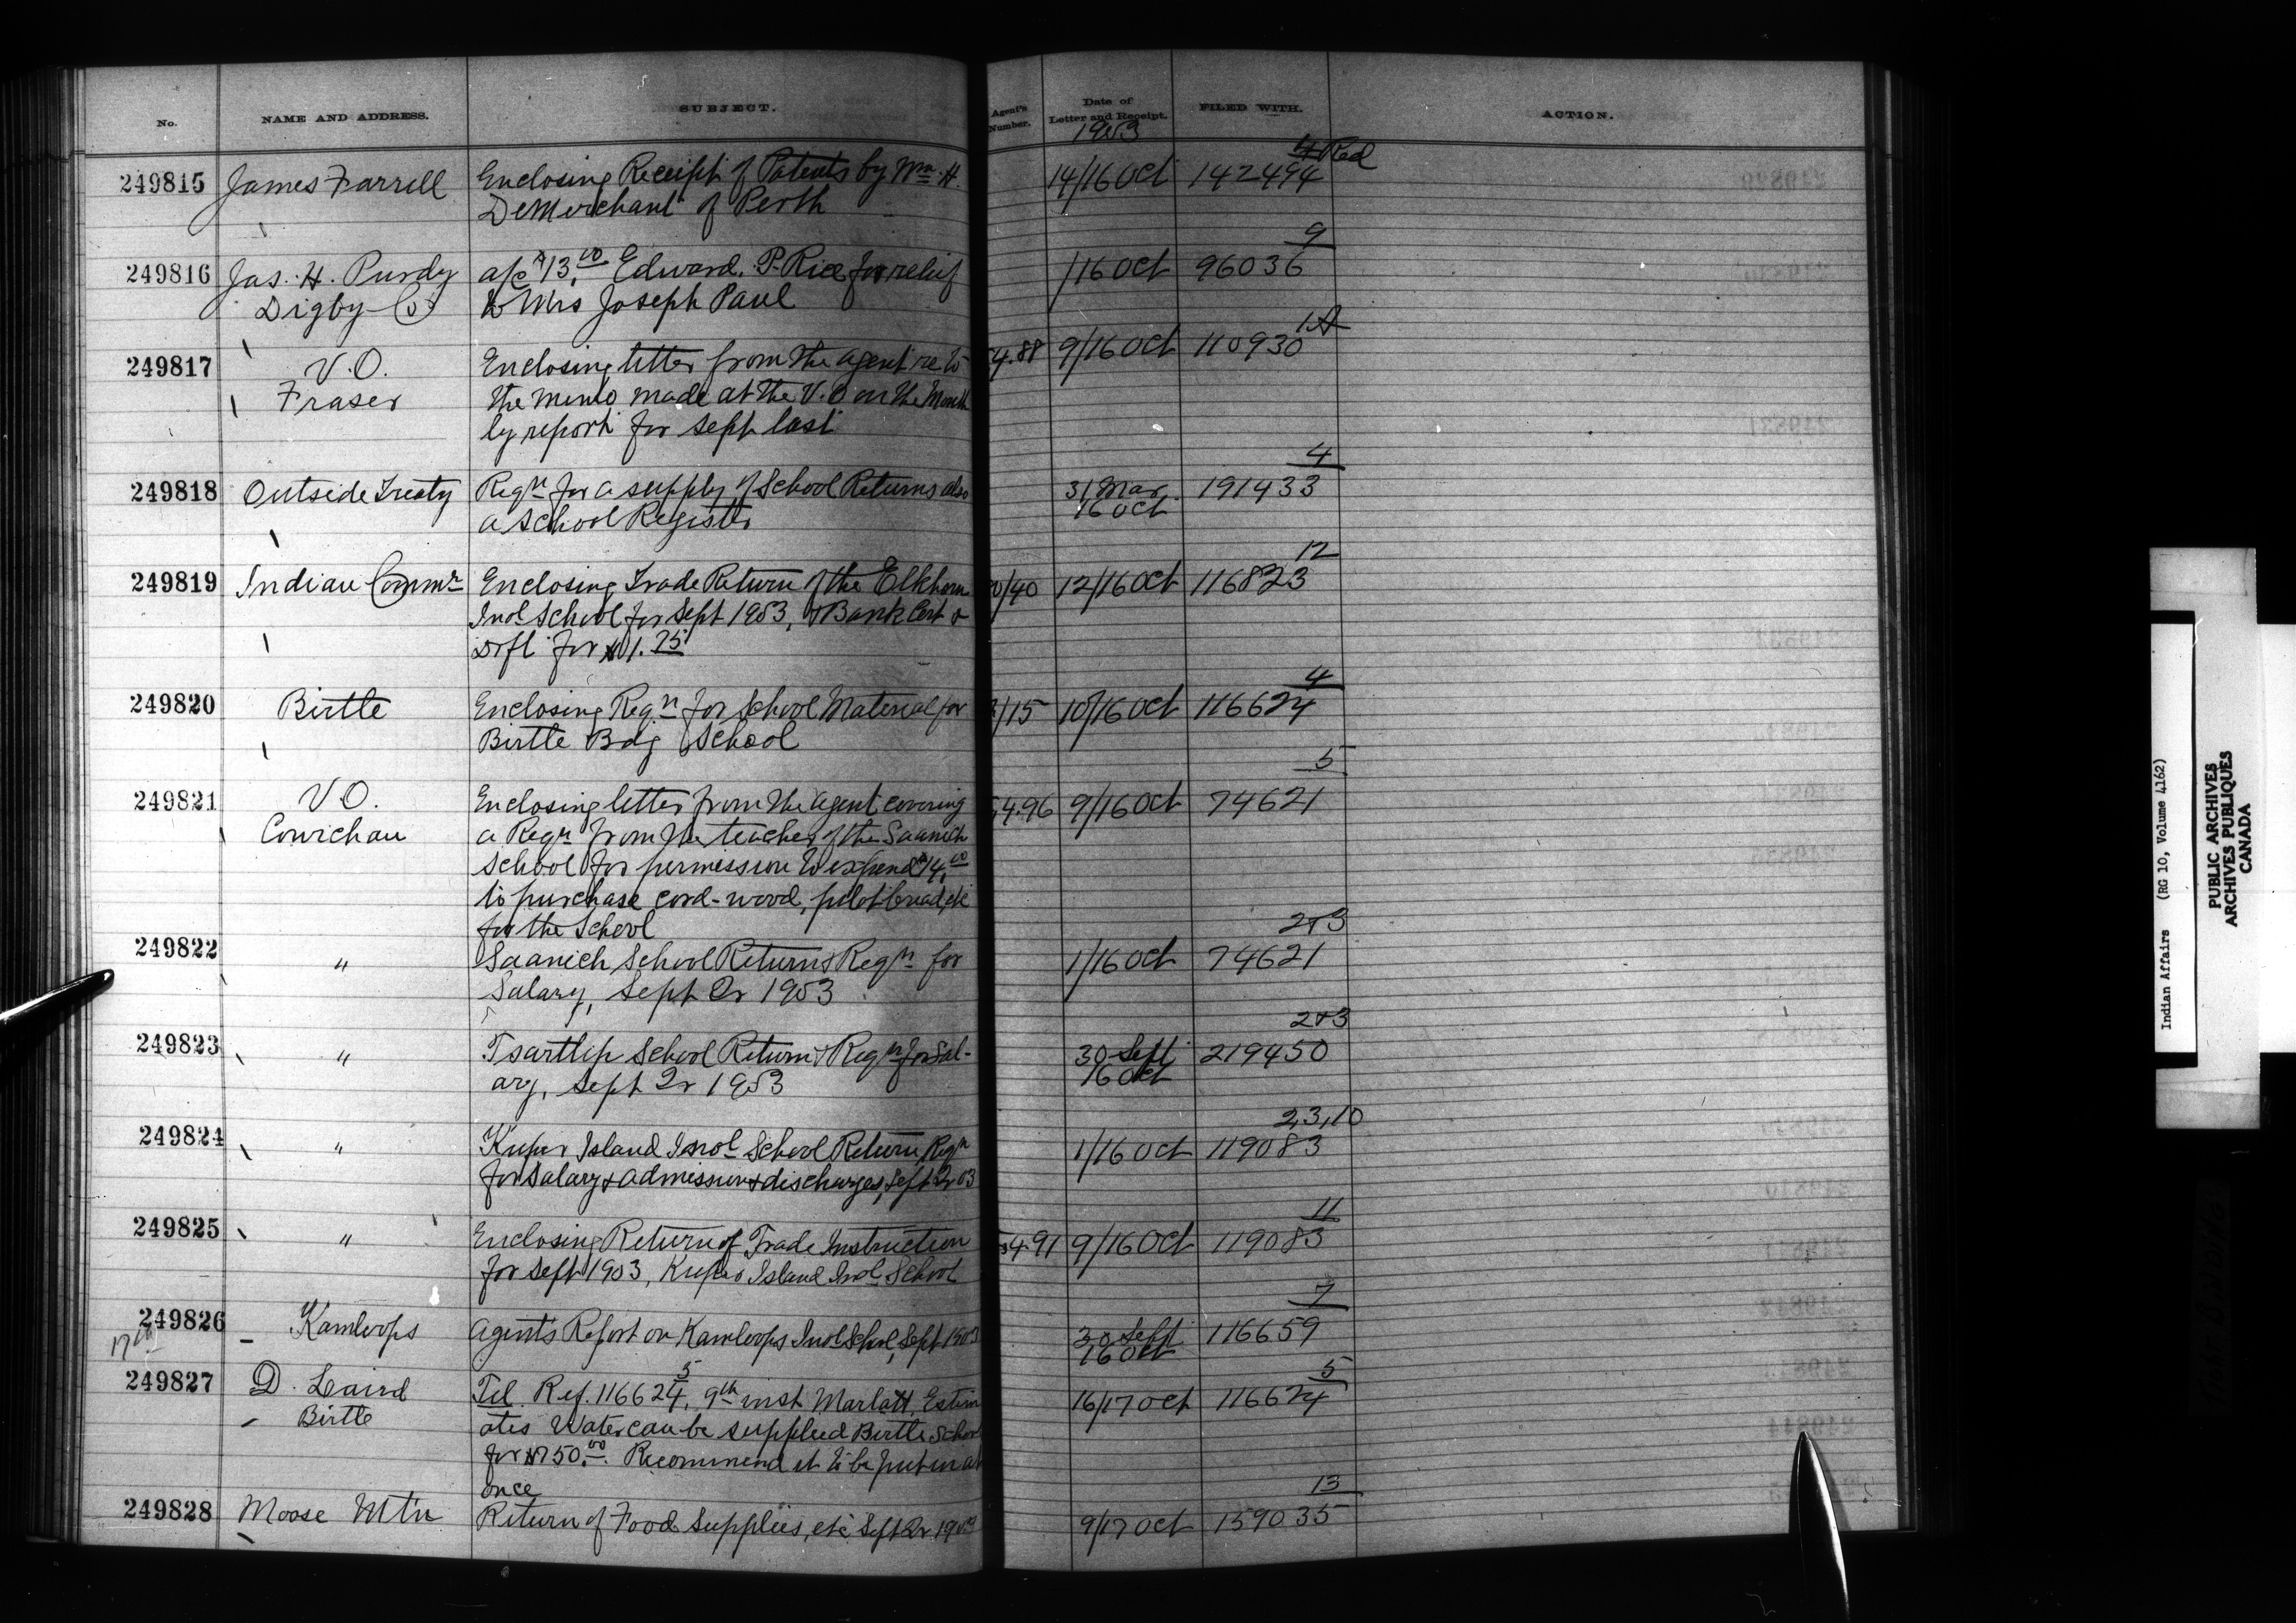 No. NAME AND ADDRESS. SUBJECT. Agent's Number. Date of Letter and Receipt. FILED WITH. ACTION.
1903
249815 James Farrell Enclosing Receipt of Patents by Wm. H. 14/16 Oct 142494 4 Red
DeMerchant of Perth
249816 Jas. H. Purdy a/c $13.00 Edward. P. Rice for relief /16 Oct 96036 9
Digby Co to Mrs Joseph Paul
249817 V.O. Enclosing letter from the agent re to 4.88 9/16 Oct 110930 1A
Fraser the memo made at the V.O on the Month
ly report for Sept last
249818 Outside Treaty Reqn for a supply of School Returns also 31 Mar. 191433 4
a School Register 16 Oct
249819 Indian Commr Enclosing Trade Return of the Elkhorn 0/40 12/16 Oct 116823 12
Indl School for Sept 1903, & Bank Cert &
Dft for 1.75
249820 Birtle Enclosing Reqn for School Material for /15 10/16 Oct 116624 4
Birtle Bdg School
249821 V.O. Enclosing letter from the agent covering 4.96 9/16 Oct 74621 5
Cowichan a Reqn from the teacher of the Saanich
School for permission to expend $14.00
to purchase cord-wood, pilot bread, etc
for the School
249822 " Saanich School Return & Reqn for 1/16 Oct 74621 2+3
Salary, Sept Qr 1903
249823 " Tsartlip School Return & Reqn for Sal- 30 Sept 219450 2+3
ary, Sept Qr 1903 16 Oct
249824 " Kuper Island Indl School Return, Reqn 1/16 Oct 119083 2,3,10
for Salary & admissions & discharges, Sept Qr 03
249825 " Enclosing Return of Trade Instruction 4.91 9/16 Oct 119083 11
for Sept 1903, Kuper Island Indl School
249826 Kamloops Agent's Report on Kamloops Indl School, Sept 1903 30 Sept 116659 7
17th 16 Oct
249827 D. Laird Tel. Ref. 116624, 5 9th inst Marlatt, Estim 16/17 Oct 116624 5
Birtle ates Water can be supplied Birtle School
for $750.00. Recommend it to be put in at
once
249828 Moose Mtn Return of Food Supplies, etc. Sept Qr 1903 9/17 Oct 159035 13
Indian Affairs (RG 10, Volume 4162)
PUBLIC ARCHIVES
ARCHIVES PUBLIQUES
CANADA